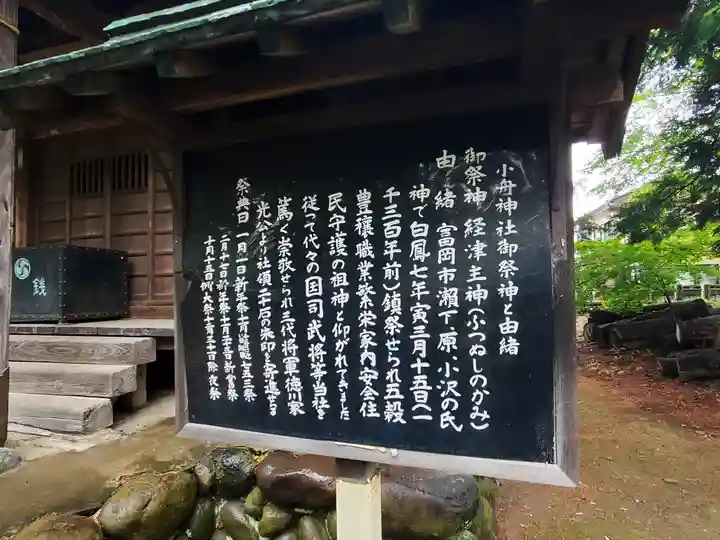 小舟神社御祭神と由緒
御祭神 経津主神(ふつぬしのかみ)
由緒 富岡市瀬下、原、小沢の氏
神で白鳳七年寅三月十五日(一
千三百年前)鎮祭せられ五穀
豊穣職業繁栄家内安全住
民守護の祖神と仰がれてきました
従って代々の国司武将等当社を
篤く崇敬せられ三代将軍徳川家
光公より社領二十石の朱印を寄進せらる
祭典日 一月一日新年祭
十月十五日例大祭 十二月三十一日除夜祭
銭